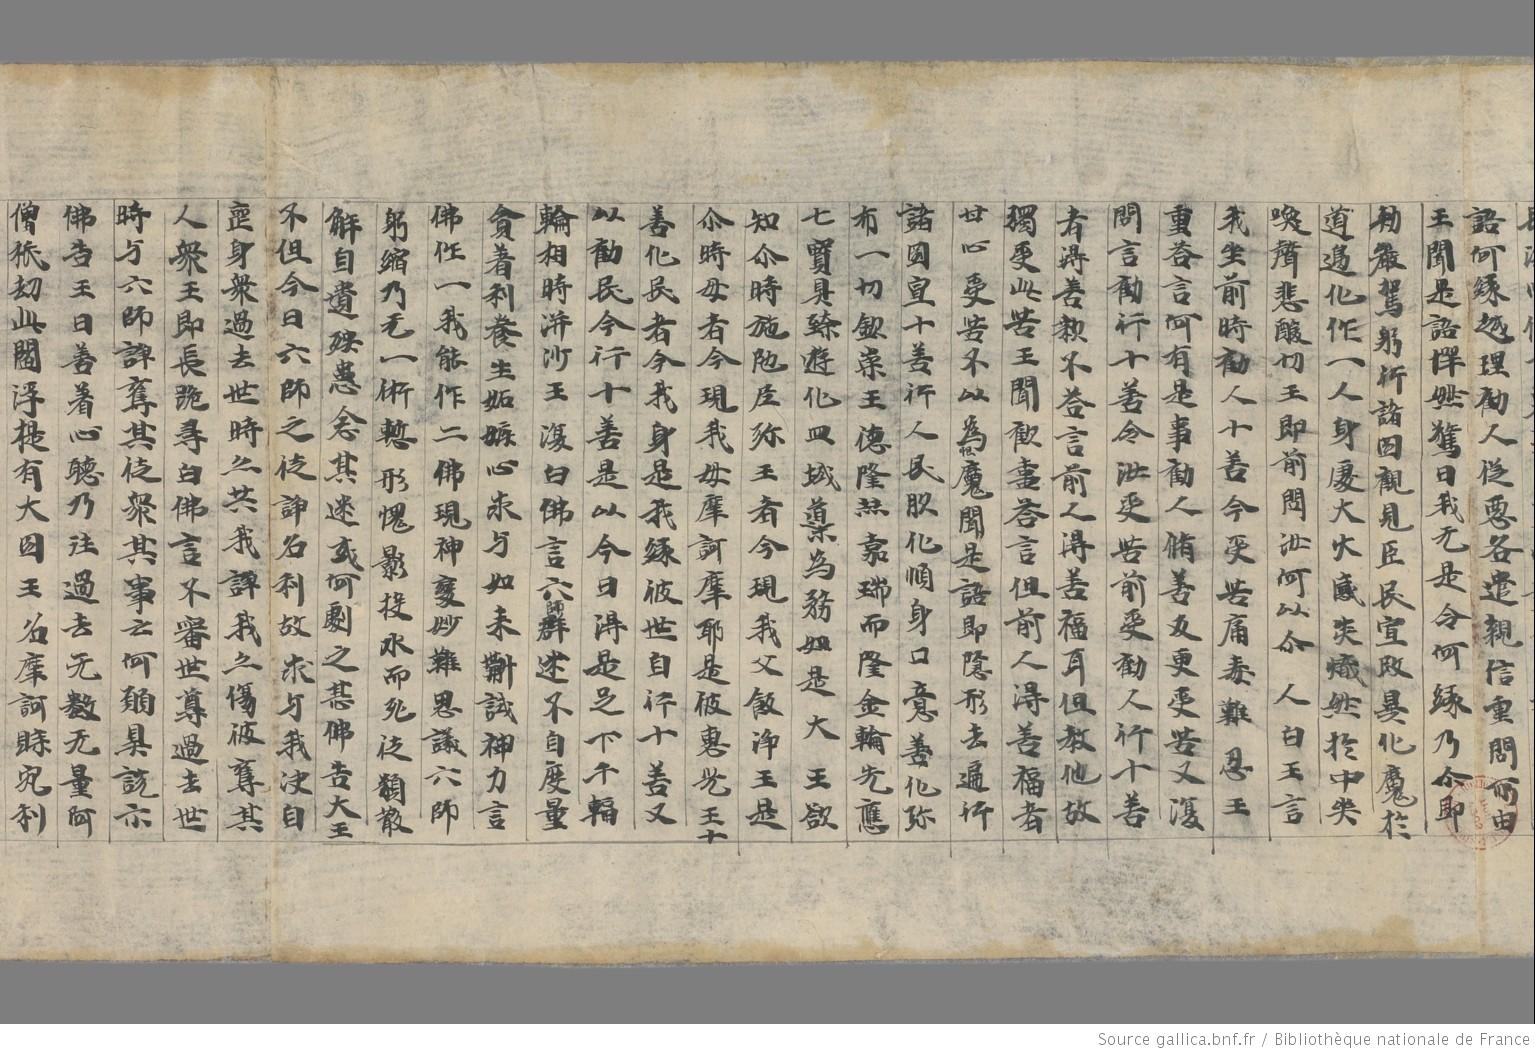 語何緣越理勸人從惡各遣親信重問所由
王聞是語憚然驚曰我无是令何緣乃尒即
勑嚴駕躬行諸囯觀見臣民宣改異化魔於
道邊化作一人身處大火感炎熾然於中央
喚聲悲酸切王即前問汝何以尒 人白王言
我坐前時勸人十善今受苦痛毒難忍王
重荅言何有是事勸人脩善友更受苦又復
問言勸行十善令汝受苦前受勸人行十善
者得善款不荅言前人得善福耳但教他故
獨更此苦王聞歡喜荅言但前人得善福者
甘心受苦不以為恨魔聞是語即隱形去遍行
諸囯宣十善行人民欣化順身口意善化弥
布一切欽崇王德隆熙嘉瑞而隆金輪先應
七寶具臻遊化四域導為務如是大 王欲
知尒時施陁臣弥王者今現我父飯淨王是
尒時母者今現我母摩訶摩耶是彼惠光王十
善化民者今我身是我緣彼世自行十善又
以勸民令行十善是以今日得是足下千輻
輪相時洴沙王復白佛言六師群迷不自度量
貪著利養生姤嫉心求与如来捔試神力言
佛作一我能作二佛現神變妙難思議六師
躬縮乃无一術慙形愧影投水而死徒類散
解自遺殃患念其迷或何劇之甚佛告大王
不但今日六師之徒諍名利故求与我決自
喪身衆過去世時亦共我諍我之傷彼奪其
人衆王即長跪尋白佛言不審世尊過去世
時与六師諍奪其徒衆其事云何願具說示
佛告王曰善著心聽乃往過去无數无量阿
僧祇劫此閻浮提有大囯王名摩訶賒宛利
Source gallica.bnf.fr / Bibliothèque nationale de France